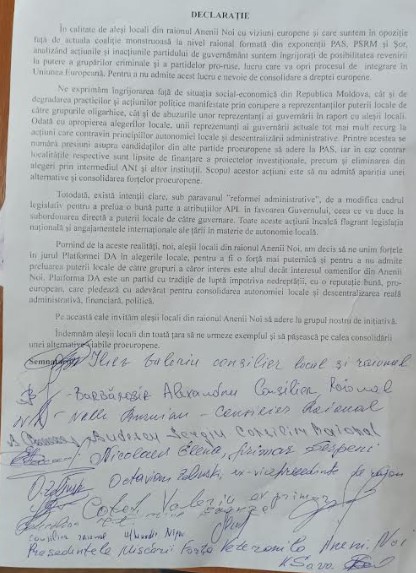 DECLARAȚIE
În calitate de aleși locali din raionul Anenii Noi cu viziuni europene și care suntem în opoziție
față de actuala coaliție monstruoasă la nivel raional formată din exponenții PAS, PSRM și Șor,
analizând acțiunile și inacțiunile partidului de guvernământ suntem îngrijorați de posibilitatea revenirii
la putere a grupărilor criminale și a partidelor pro-ruse, lucru care va opri procesul de integrare în
Uniunea Europeană. Pentru a nu admite acest lucru e nevoie de consolidare a dreptei europene.
Ne exprimăm îngrijorarea față de situația social-economică din Republica Moldova, cât și de
degradarea practicilor și acțiunilor politice manifestate prin corupere a reprezentanților puterii locale de
către grupurile oligarhice, cât și de abuzurile unor reprezentanți ai guvernării în raport cu aleșii locali.
Odată cu apropierea alegerilor locale, unii reprezentanți ai guvernării actuale tot mai mult recurg la
acțiuni care contravin principiilor autonomiei locale și descentralizării administrative. Printre acestea se
numără presiuni asupra candidaților din alte partide proeuropene să adere la PAS, iar în caz contrar
localitățile respective sunt lipsite de finanțare a proiectelor investiționale, precum și eliminarea din
alegeri prin intermediul ANI și altor instituții. Scopul acestor acțiuni este să nu admită apariția unei
alternative și consolidarea forțelor proeuropene.
Totodată, există intenții clare, sub paravanul "reformei administrative", de a modifica cadrul
legislativ pentru a prelua o bună parte a atribuțiilor APL în favoarea Guvernului, ceea ce va duce la
subordonarea directă a puterii locale de către guvernare. Toate aceste acțiuni încalcă flagrant legislația
națională și angajamentele internaționale ale țării în materie de autonomie locală.
Pornind de la aceste realități, noi, aleșii locali din raionul Anenii Noi, am decis să ne unim forțele
în jurul Platformei DA în alegerile locale, pentru a fi o forță mai puternică și pentru a nu admite
preluarea puterii locale de către grupuri a căror interes este altul decât interesul oamenilor din Anenii
Noi. Platforma DA este un partid cu tradiție de luptă împotriva nedreptății, cu o reputație bună, pro-
european, care pledează cu adevărat pentru consolidarea autonomiei locale și descentralizarea reală
administrativă, financiară, politică.
Pe această cale invităm aleșii locali din raionul Anenii Noi să adere la grupul nostru de inițiativă.
Îndemnăm aleșii locali din toată țara să ne urmeze exemplul și să pășească pe calea consolidării
unei alternative viabile proeuropene.
Valeriu consilier local și raional
Alexandru Consilier Raional
Nelli - Consilier Raional
Sergiu Consilier Raional
Nicolaev Elena, primar
Octavian, ex-vicepreședinte de raion
Valeriu ex primar
consilier raional
Președintele Mișcării Forța Veteranilor Anenii Noi